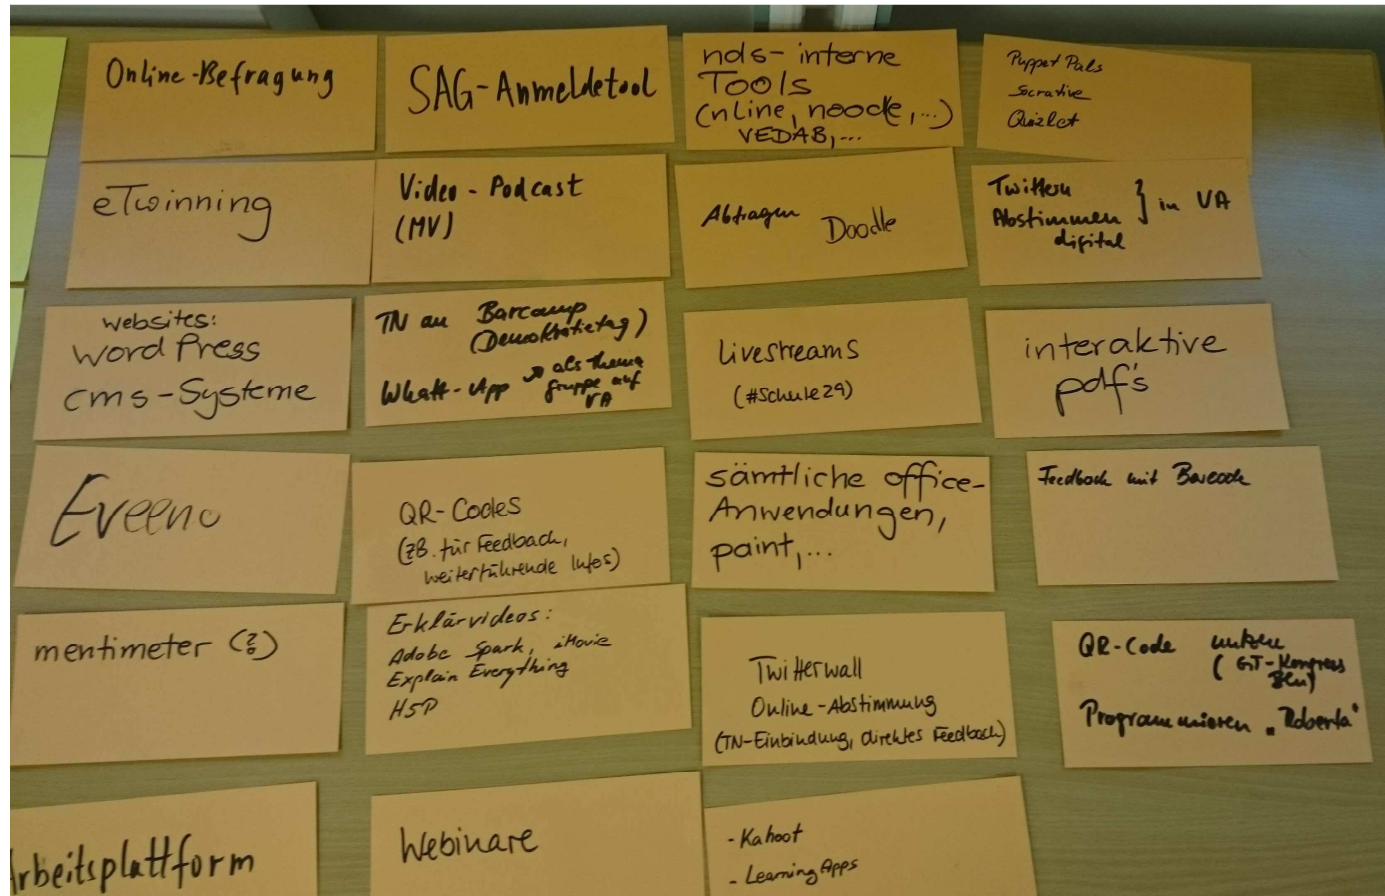 Online-Befragung
SAG-Anmeldetool
nds-interne
Tools
(nline, noodle,...)
VEDAB,...
Puppet Pals
Socrative
Quizlet
eTwinning
Video-Podcast
(MV)
Abfragen Doodle
Twittern
Abstimmen } in VA
digital
websites:
Word Press
cms-Systeme
TN an Barcamp
(Demokratietag)
Whatt-App → als Thema
gruppe auf
VA
Livestreams
(#Schule29)
interaktive
pdf's
Eveeno
QR-Codes
(zB. für Feedback,
weiterführende Infos)
sämtliche office-
Anwendungen,
paint,...
Feedback mit Barcode
mentimeter (?)
Erklärvideos:
Adobe Spark, iMovie
Explain Everything
H5P
Twitterwall
Online-Abstimmung
(TN-Einbindung, direktes Feedback)
QR-Code nutzen
(GT-Kongress
Programmieren „Roberta"
Arbeitsplattform
Webinare
- Kahoot
- LearningApps